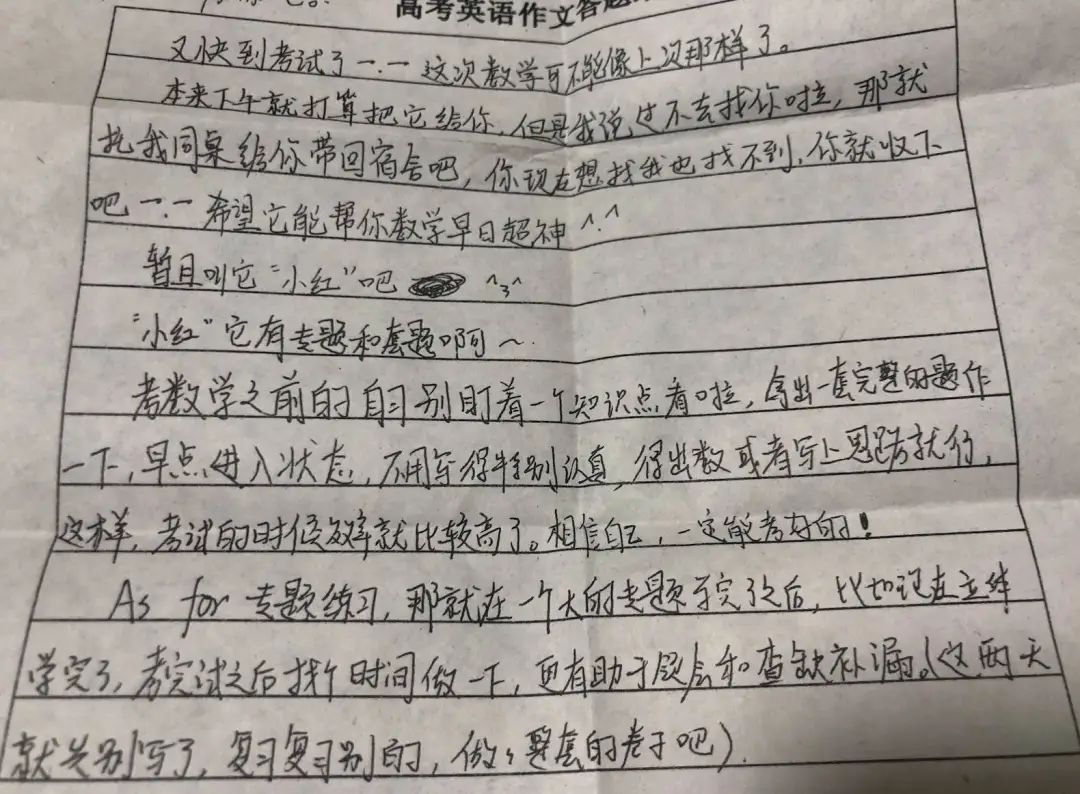 高考英语作文答题
又快到考试了一.一 这次数学可不能像上次那样了。
本来下午就打算把它给你,但是我说过不去找你啦,那就
托我同桌给你带回宿舍吧,你现在想找我也找不到,你就收下
吧 一.一 希望它能帮你数学早日超神 ^.^
暂且叫它“小红”吧 ^3^
“小红”它有专题和套题啊~
考数学之前的自习别盯着一个知识点看啦,拿出一套完整的题作
一下,早点进入状态,不用写得特别认真,得出数或者写上思路就行,
这样,考试的时候效率就比较高了。相信自己,一定能考好的!
As for 专题练习,那就在一个大的专题学完了之后,比如现在立体
学完了,考完试之后找个时间做一下,更有助于融会和查缺补漏。(这两天
就先别写了,复习复习别的,做做整套的卷子吧)